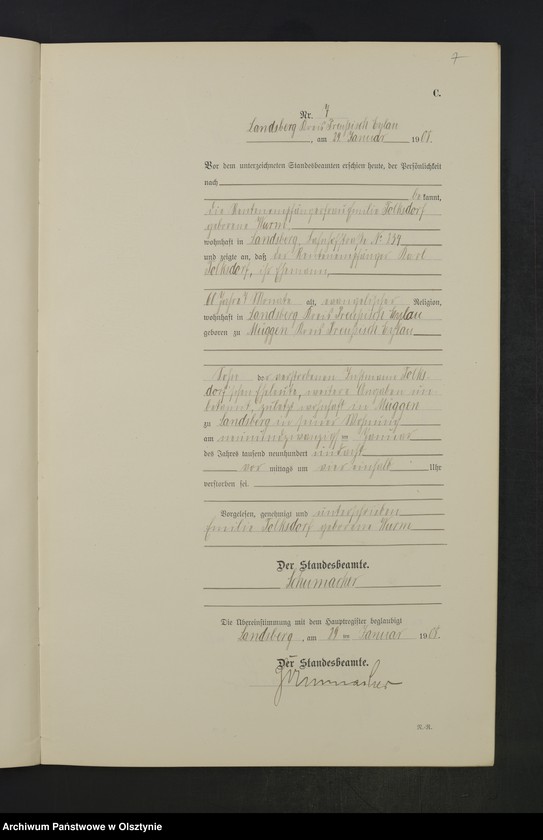 7
C.
Nr. 7
Landsberg Kreis Preußisch Eylau
, am 29. Januar 1908.
Vor dem unterzeichneten Standesbeamten erschien heute, der Persönlichkeit
nach
be kannt,
die Rentenempfängerfrau Emilie Tolksdorf
geborene
wohnhaft in Landsberg, Bahnhofstraße No 139
und zeigte an, daß der Rentenempfänger Karl
Tolksdorf, ihr Ehemann,
Jahre Monate alt, evangelischer Religion,
wohnhaft in Landsberg Kreis Preußisch Eylau
geboren zu Müggen Kreis Preußisch Eylau
Sohn der verstorbenen Instmann Tolks-
dorf'schen Eheleute, weitere Angaben un
bekannt, zuletzt wohnhaft in Müggen
zu Landsberg in seiner Wohnung
am neunundzwanzigsten Januar
des Jahres tausend neunhundert und acht
vor mittags um vier einhalb Uhr
verstorben sei.
Vorgelesen, genehmigt und unterschrieben
Emilie Tolksdorf geborene
Der Standesbeamte.
Schumacher
Die Übereinstimmung mit dem Hauptregister beglaubigt
Landsberg, am 29 ten Januar 1908.
Der Standesbeamte.
Schumacher
R.-R.
Archiwum Państwowe w Olsztynie